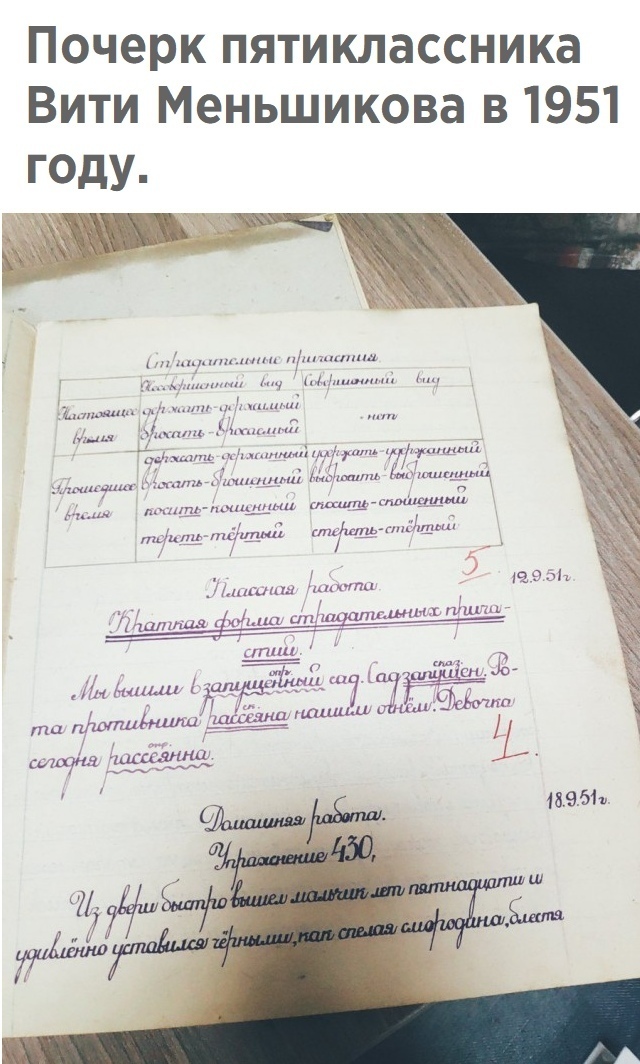 Почерк пятиклассника
Вити Меньшикова в 1951
году.
Страдательные причастия.
Несовершенный вид Совершенный вид
Настоящее время
держать-держимый
бросать-бросаемый
- нет
Прошедшее время
держать-держанный
бросать-брошенный
косить-кошенный
тереть-тёртый
удержать-удержанный
выбросить-выброшенный
скосить-скошенный
стереть-стёртый
5
12.9.51г.
Классная работа.
Краткая форма страдательных прича-
стий.
опр. сказ.
Мы вышли в запущенный сад. Сад запущен. Ро-
ск.
та противника рассеяна нашим огнём. Девочка
опр.
сегодня рассеянна.
4.
18.9.51г.
Домашняя работа.
Упражнение 430,
Из двери быстро вышел мальчик лет пятнадцати и
удивлённо уставился чёрными, как спелая смородина, блестя